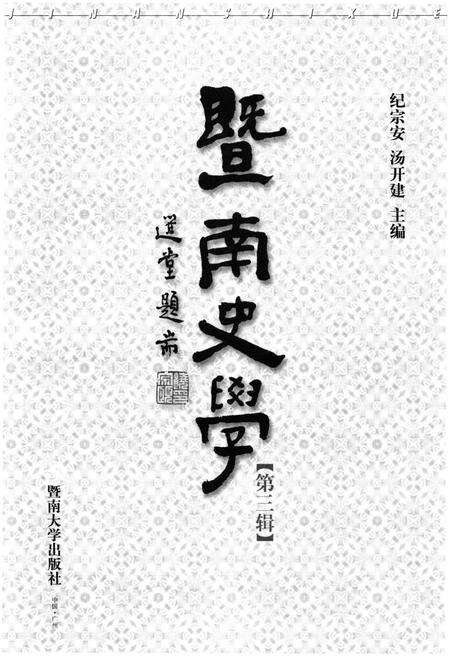 JINANSHIXUE
纪宗安 汤开建 主编
暨南史學
選堂題耑
【第三辑】
暨南大学出版社
中国·广州